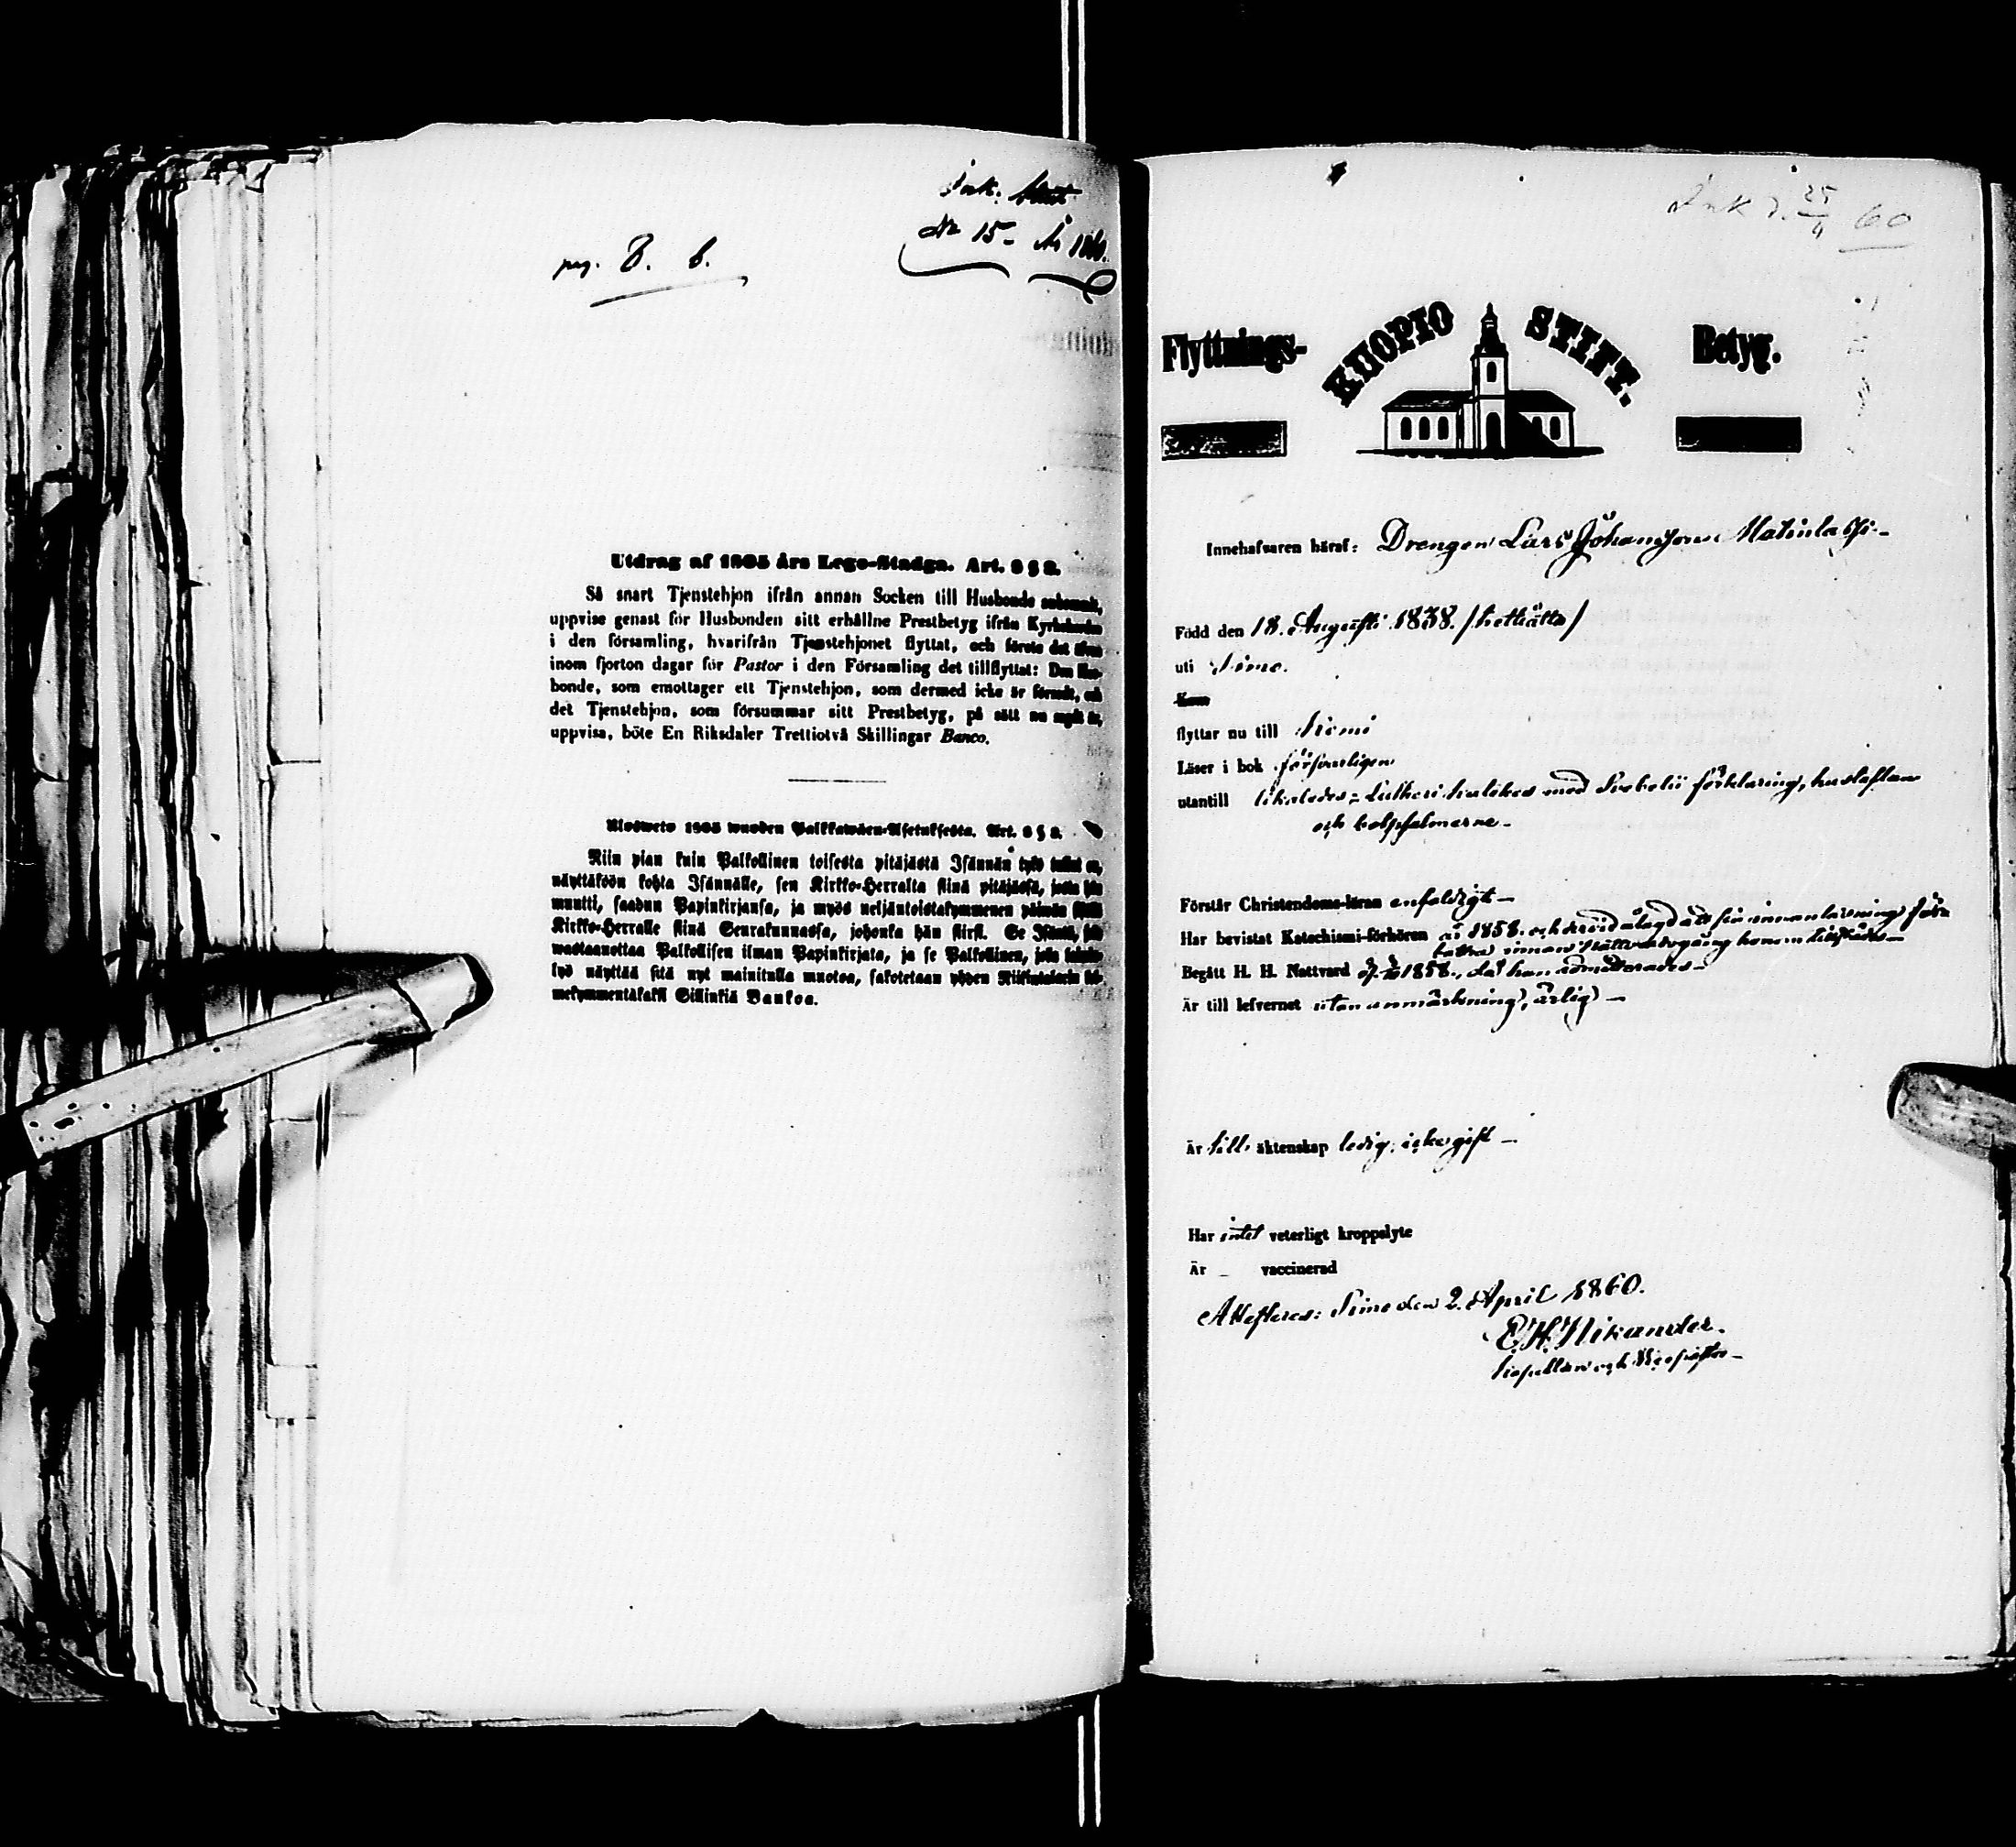 Ink. Attest.
No 15 - År 1860.
pag. 8. b.
Utdrag af 1805 års Lego-Stadga. Art. 8 § 2.
Så snart Tjenstehjon ifrån annan Socken till Husbonde
uppvise genast för Husbonden sitt erhållne Prestbetyg ifrån
i den församling, hvarifrån Tjenstehjonet flyttat, och förete det
inom fjorton dagar för Pastor i den Församling det tillflyttat: Den Hus-
bonde, som emottager ett Tjenstehjon, som dermed icke är försedt, och
det Tjenstehjon, som försummar sitt Prestbetyg, på sätt nu sagdt är,
uppvisa, böte En Riksdaler Trettiotvå Skillingar Banco.
Ulosweto 1805 wuoden Palkkawäen-Asetuksesta. Art. 8 § 2.
Niin pian kuin Palkollinen toisesta pitäjästä Isännän tykö tullut on,
näyttäköön kohta Isännälle, sen Kirkko-Herralta siinä pitäjässä, josta hän
muutti, saadun Papinkirjansa, ja myös neljäntoistakymmenen päiwän
Kirkko-Herralle siinä Seurakunnassa, johonka hän siirsi. Se Isäntä, joka
wastaanottaa Palkollisen ilman Papinkirjata, ja se Palkollinen, joka
lyö näyttää sitä nyt mainitulla muotoa, sakotetaan yhden Riikintalarin kol-
mekymmentäkaksi Sillinkiä Bankoa.
Ink d. 25/4 60
Flyttnings- KUOPIO STIFT. Betyg.
Innehafvaren häraf: Drengen Lars Johansson Matinlassi-
Född den 18. Augusti 1838. /trettiåtta/
uti Simo.
flyttar nu till Kemi
Läser i bok försvarligen
utantill likaledes; Lutheri katekes med Svebelii förklaring, hustaflan
och botpsalmerne -
Förstår Christendoms-läran enfaldigt -
Har bevistat Katechismi-förhören år 1858. och dervid ålagd att sin innanläsning för-
bättra innan Nattvardsgång honom tillstädes -
Begått H. H. Nattvard 1858., då han admitterades -
Är till lefvernet utan anmärkning, ärlig -
Är till äktenskap ledig, icke gift -
Har intet veterligt kroppslyte
Är - vaccinerad
Attesteras: Simo den 2. April 1860.
E. H. Nikander.
Kapellan och Vicepastor -